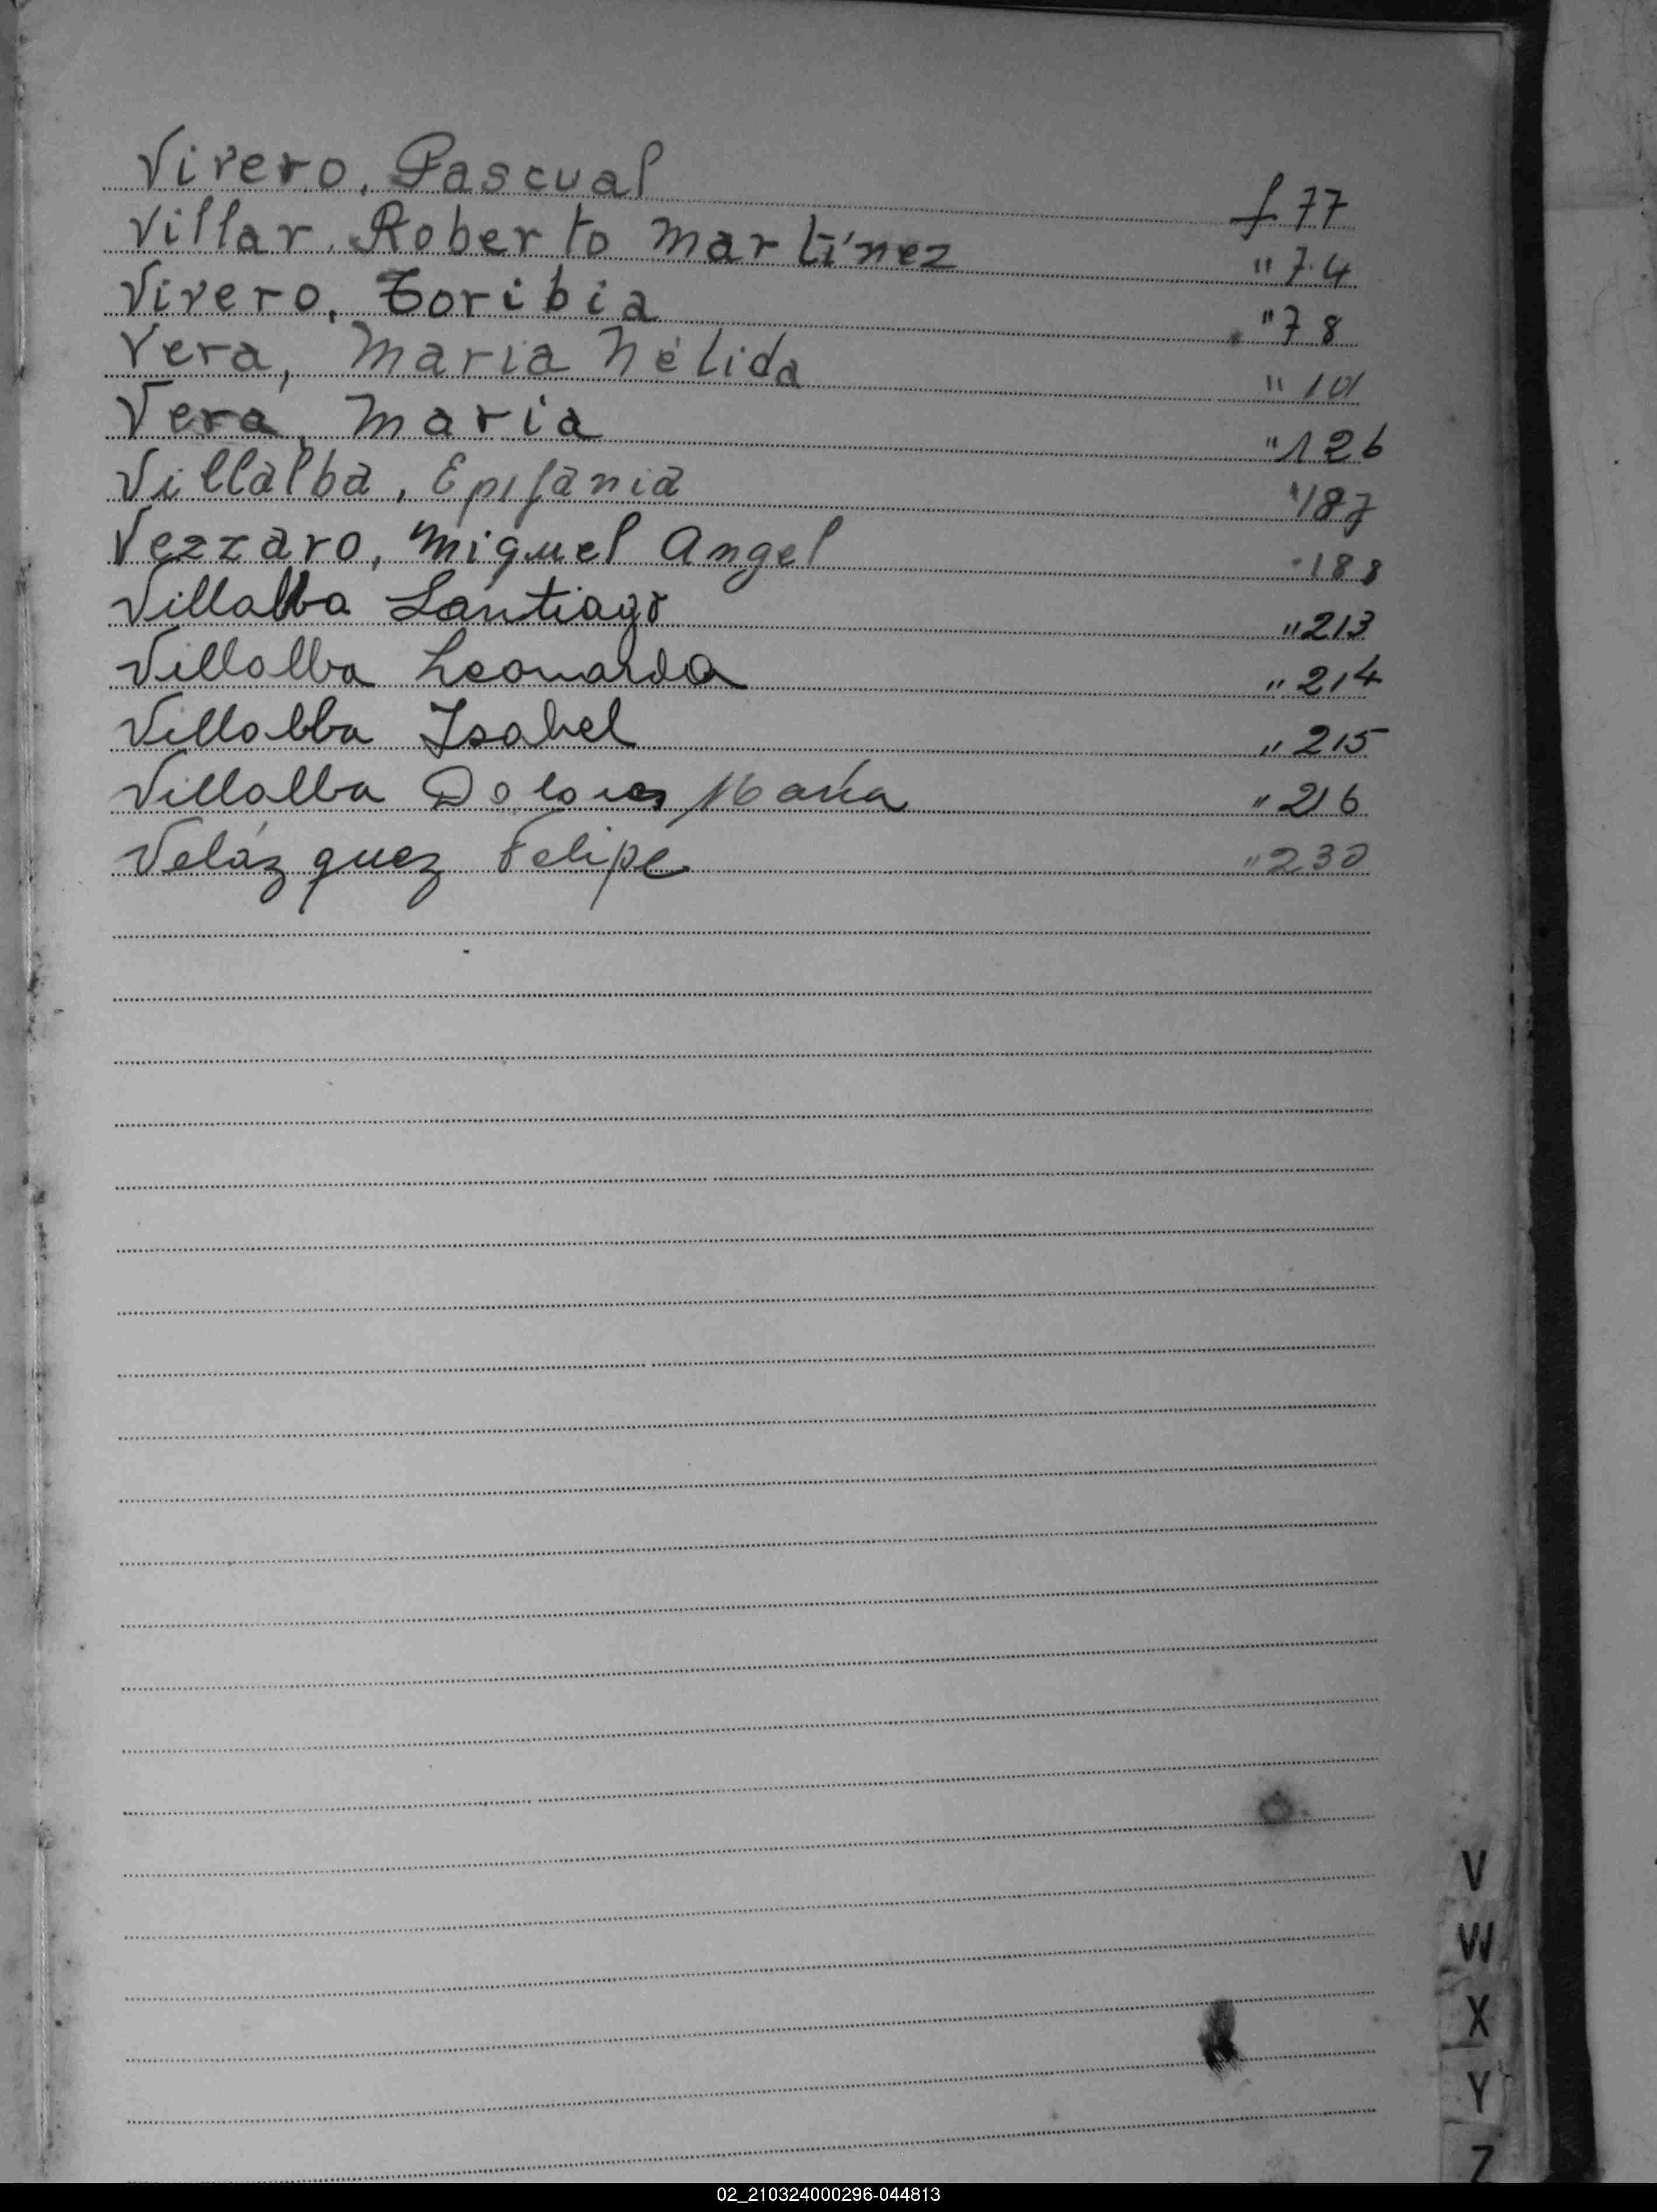 Vivero, Pascual f 77
Villar, Roberto Martínez " 74
Vivero, Toribia " 78
Vera, Maria Nélida " 101
Vera, Maria " 126
Villalba, Epifania " 187
Vezzaro, Miguel Angel " 188
Villalba Santiago " 213
Villalba Leonarda " 214
Villalba Isabel " 215
Villalba Dolores María " 216
Velázquez Felipe " 230
V
W
X
Y
Z
02_210324000296-044813